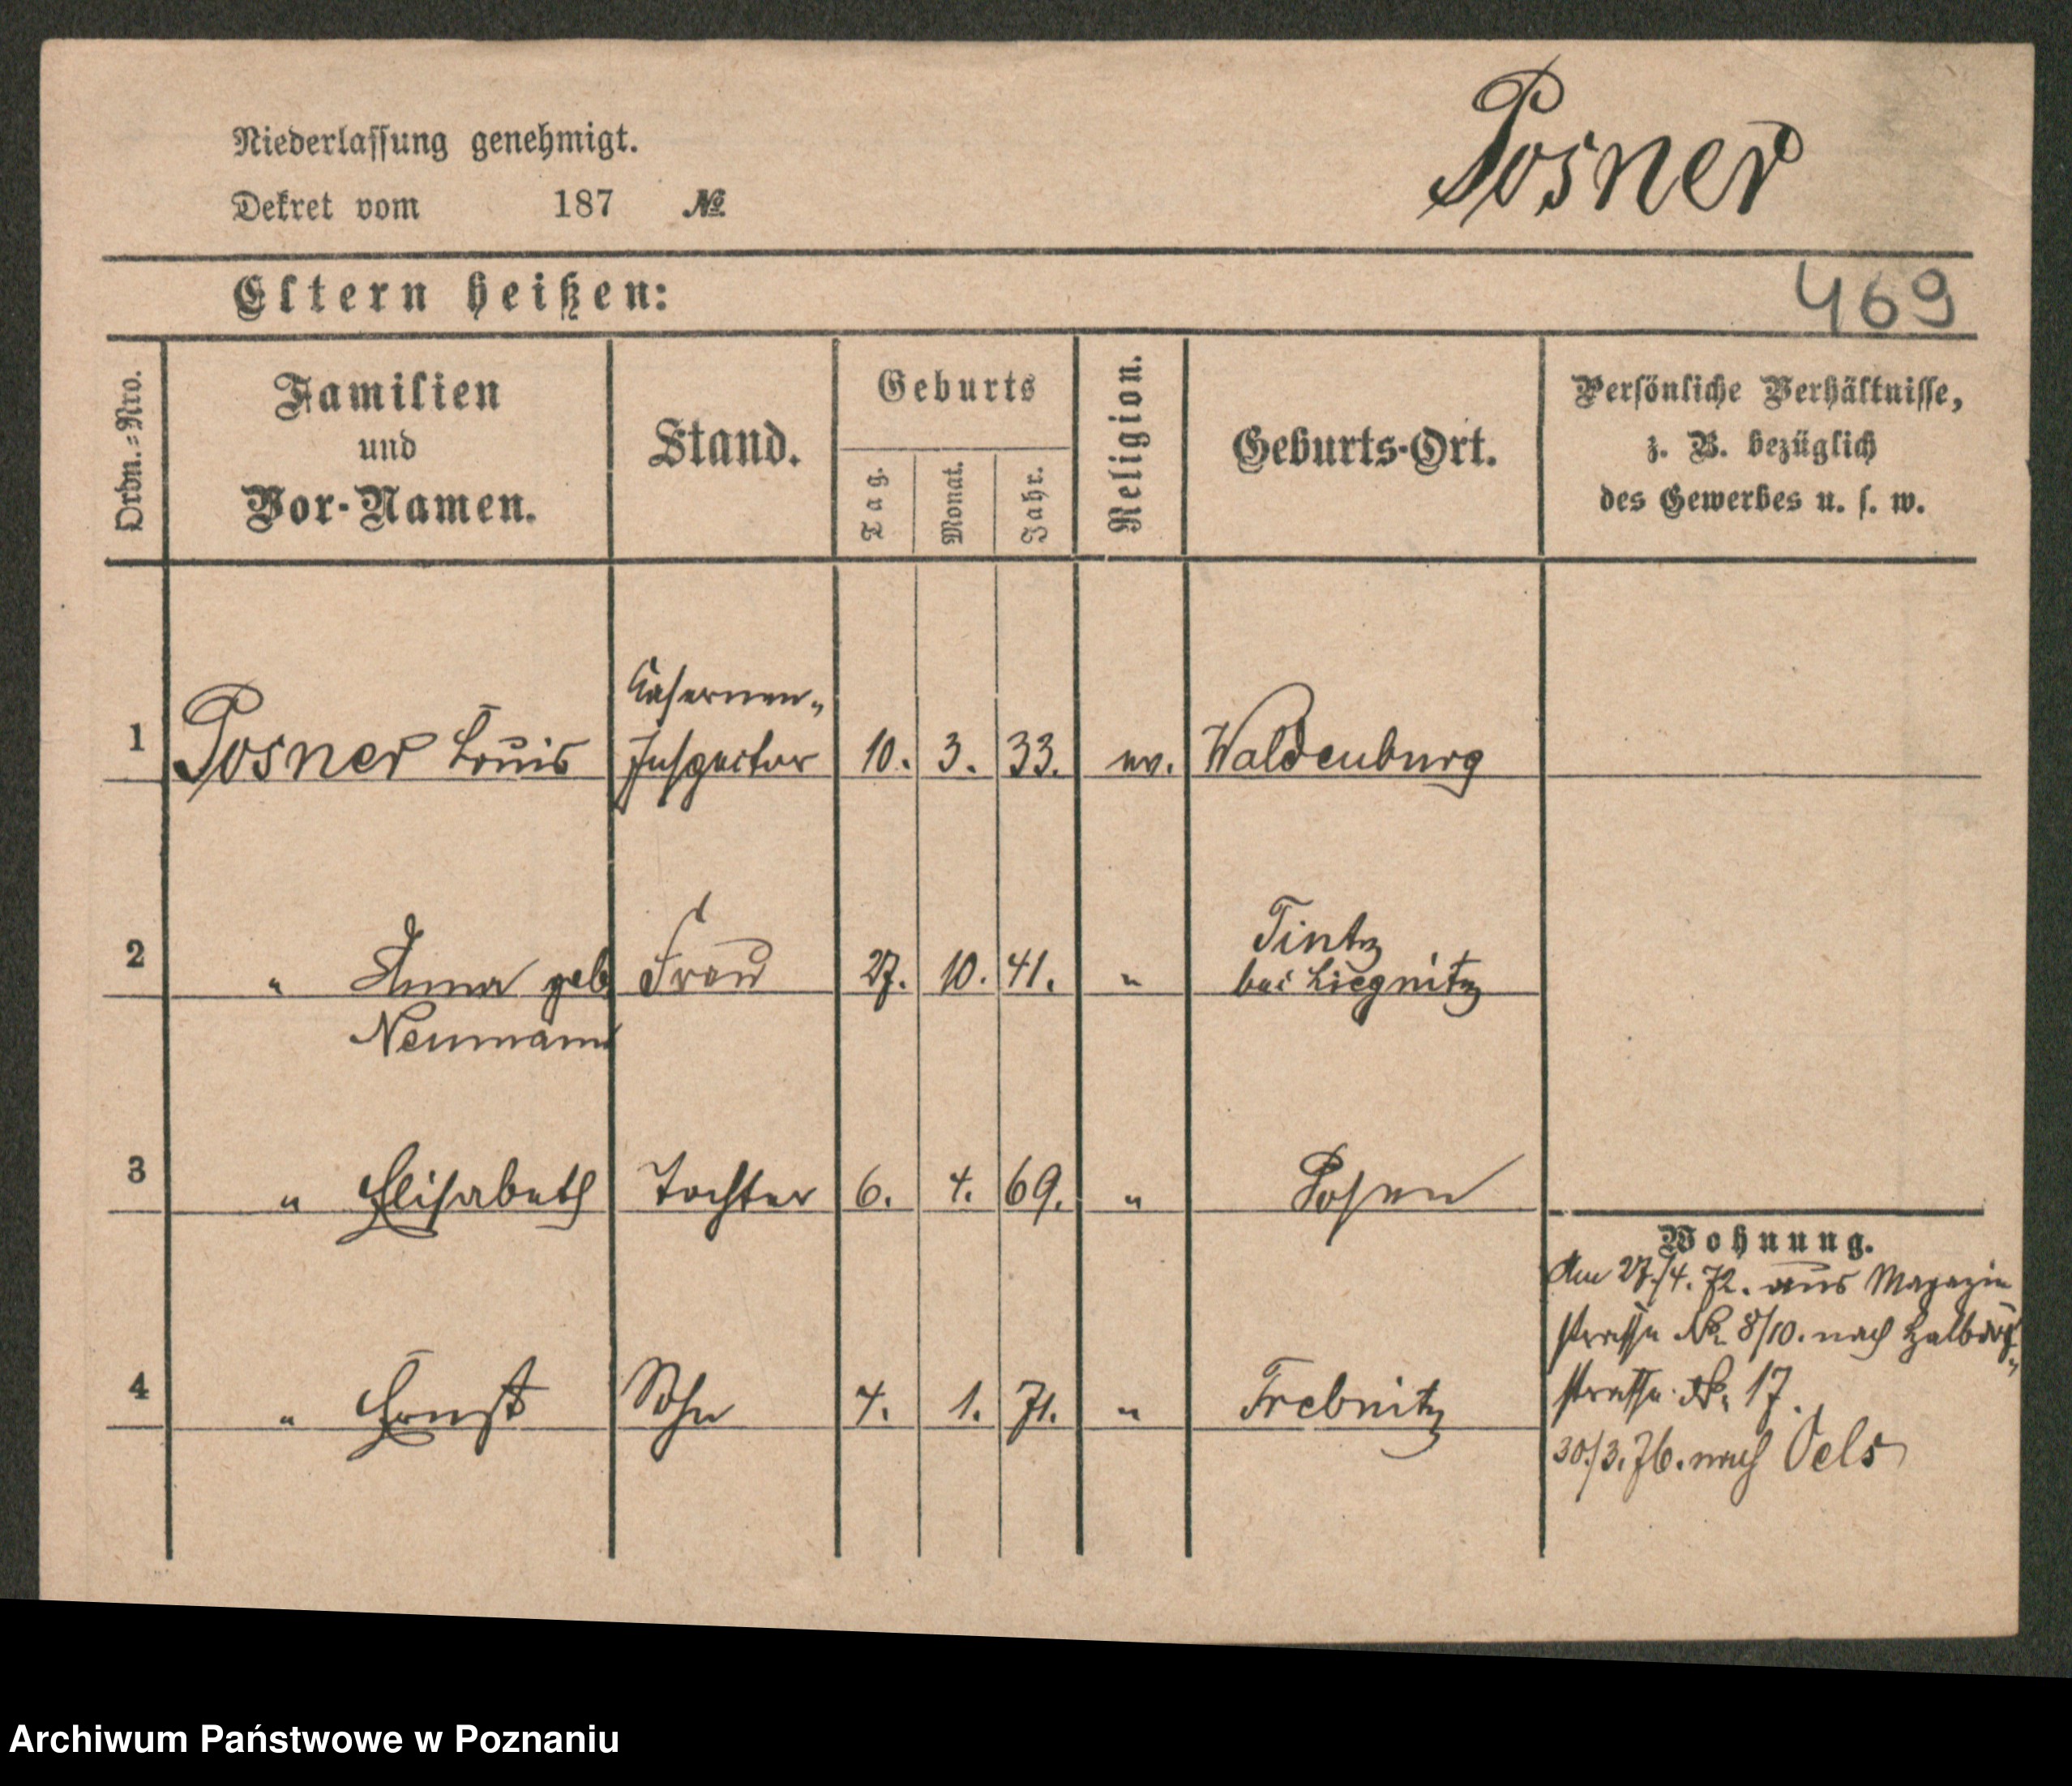 Niederlassung genehmigt.
Posner
Dekret vom 187 №
Eltern heißen:
469
Ordn.=Nro.
Familien
und
Vor-Namen.
Stand.
Geburts
Tag.
Monat.
Jahr.
Religion.
Geburts-Ort.
Persönliche Verhältnisse,
z. B. bezüglich
des Gewerbes u. s. w.
Casernen-
1 Posner Louis Inspector 10. 3. 33. ev. Waldenburg
Tintz
2 " Anna geb Frau 27. 10. 41. " bei Liegnitz
Neumann
3 " Elisabeth Tochter 6. 4. 69. " Posen
4 " Ernst Sohn 4. 1. 71. " Trebnitz
Wohnung.
Am 27./4. 72. aus Magazin
strasse No. 8/10. nach Halbdorf-
strasse No. 17.
30./3. 76. nach Oels
Archiwum Państwowe w Poznaniu